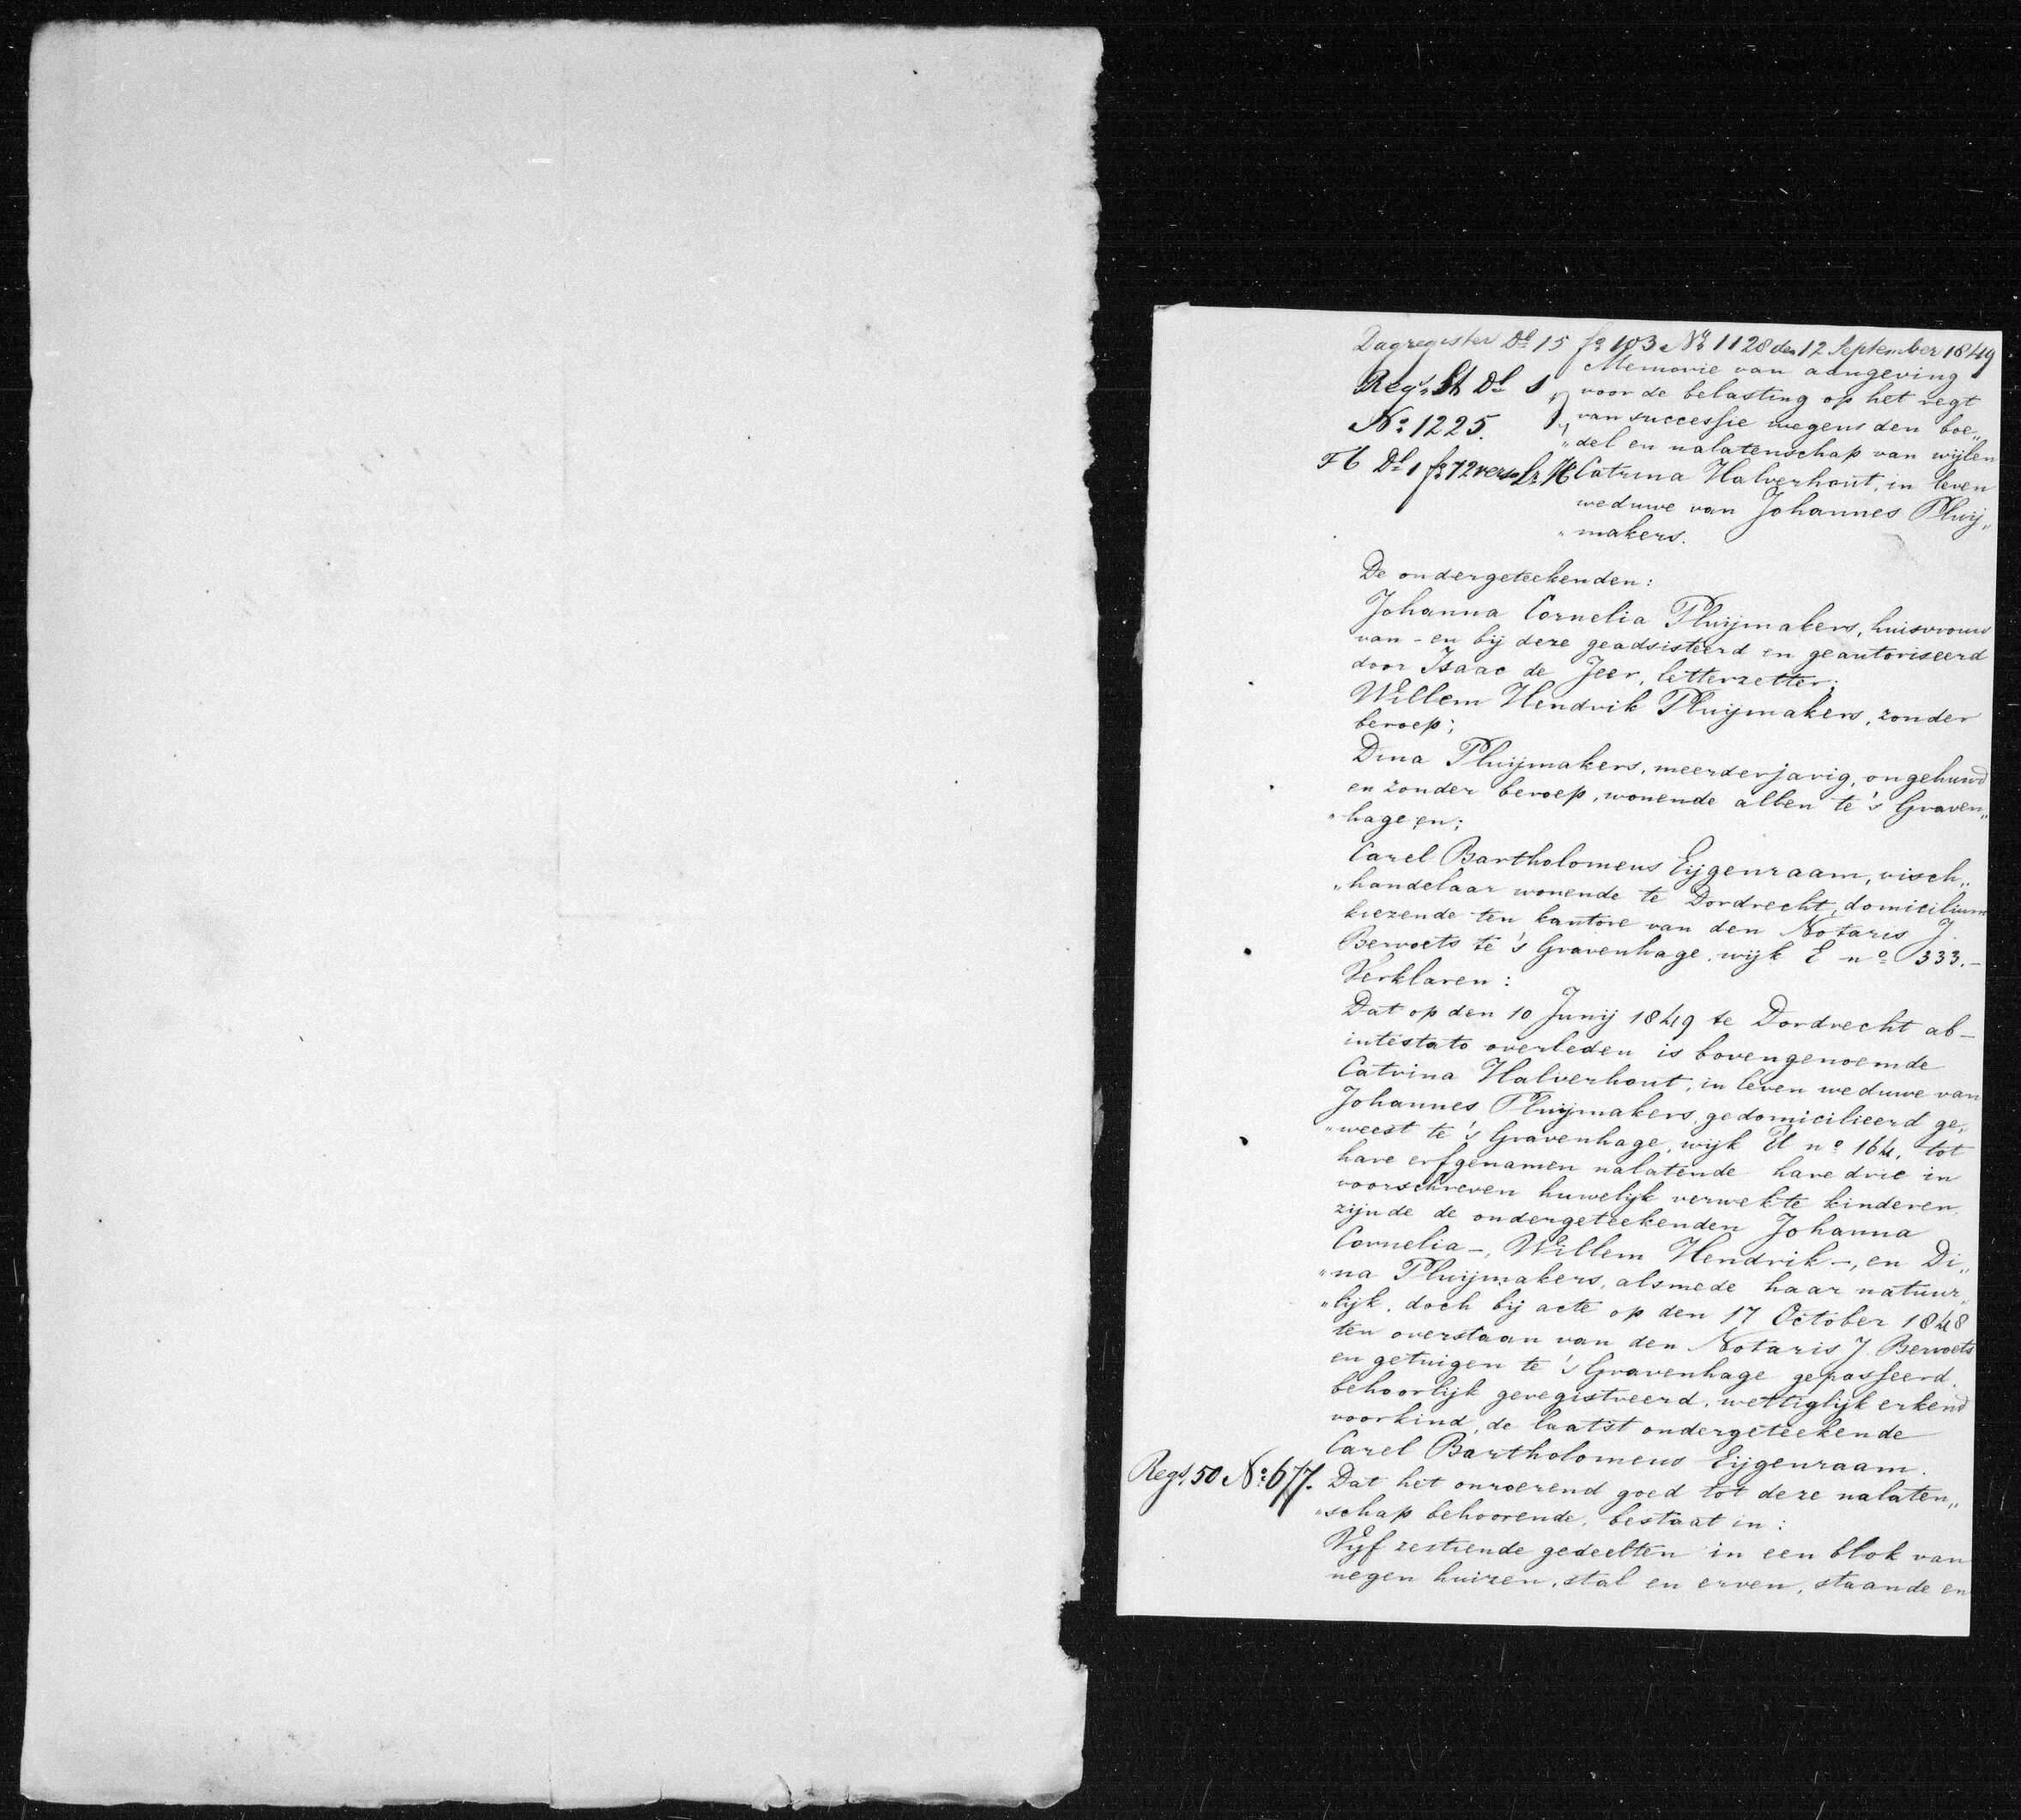 Dagregister Dl 15 fo 103 No 1128 den 12 September 1849
Memorie van aangeving
Regr. St Dl 1
voor de belasting op het regt
No 1225.
van successie wegens den boe„
„del en nalatenschap van wijlen
F6 Dl 1 fo 72 verso Lr. H
Catrina Halverhout, in leven
weduwe van Johannes Pluij„
„makers.
De ondergeteekenden:
Johanna Cornelia Pluijmakers, huisvrouw
van - en bij deze geadsisteerd en geautoriseerd
door Isaac de Jeer, letterzetter;
Willem Hendrik Pluijmakers, zonder
beroep;
Dina Pluijmakers, meerderjarig, ongehuwd
en zonder beroep, wonende allen te 's Graven„
„hage en;
Carel Bartholomeus Eijgenraam, visch„
„handelaar wonende te Dordrecht, domicilium
kiezende ten kantore van den Notaris J.
Bervoets te 's Gravenhage, wijk E no 333.-
Verklaren:
Dat op den 10 Junij 1849 te Dordrecht ab-
intestato overleden is bovengenoemde
Catrina Halverhout, in leven weduwe van
Johannes Pluijmakers, gedomicilieerd ge„
„weest te 's Gravenhage, wijk no 164, tot
hare erfgenamen nalatende hare drie in
voorschreven huwelijk verwekte kinderen,
zijnde de ondergeteekenden Johanna
Cornelia -, Willem Hendrik -, en Di„
„na Pluijmakers, alsmede haar natuur„
„lijk, doch bij acte op den 17 October 1848
ten overstaan van den Notaris J. Bervoets
en getuigen te 's Gravenhage gepasseerd,
behoorlijk geregistreerd, wettiglijk erkend
voorkind, de laatst ondergeteekende
Carel Bartholomeus Eijgenraam.
Regr. 50 No 677.
Dat het onroerend goed tot deze nalaten„
„schap behoorende, bestaat in:
Vijf zestiende gedeelten in een blok van
negen huizen, stal en erven, staande en